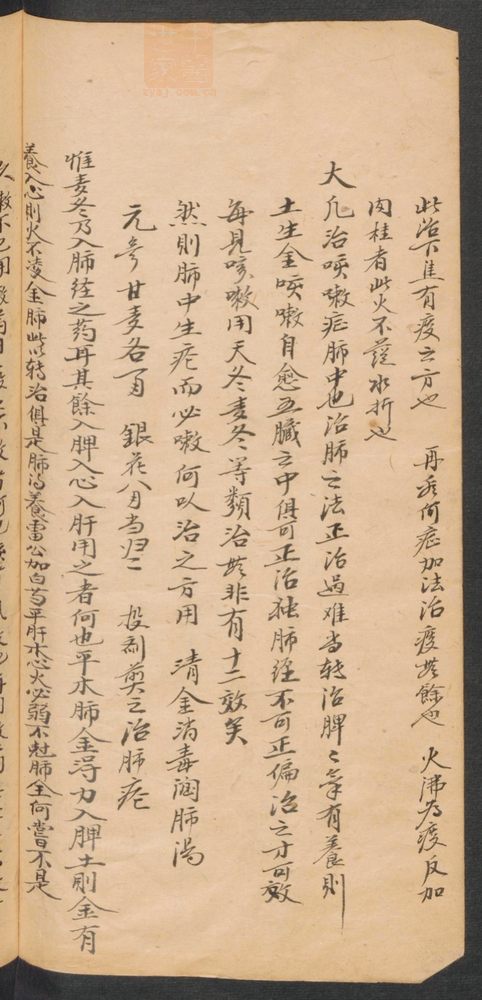 此治下焦有痰之方也　再看何症加法治痰無餘也　火沸为痰反加
肉桂者此火不
大凡治咳嗽症肺中也治肺之法正治過难当转治脾〻氣有養则
土生金咳嗽自愈五臟之中俱可正治独肺经不可正偏治之才可效
每見咳嗽用天冬麦冬等類治無非有十二效矣
然則肺中生疮而必嗽何以治之方用　清金消毒潤肺湯
元參甘麦各　銀花八月当归二　投劑煎之治肺疮
惟麦冬乃入肺经之药耳其餘入脾入心入肝用之者何也平木肺金得力入脾土則金有
養入心則火不凌金肺此转治俱是肺得養雷公加白芍平肝木心火必弱不尅肺金何嘗不是